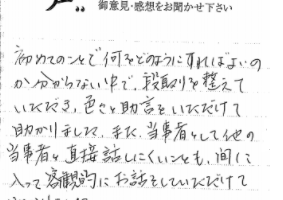 御意見・感想をお聞かせ下さい
初めてのことで何をどのようにすればよいの
か分からない中で、段取りを整えて
いただき、色々と助言をいただけて
助かりました。また、当事者として他の
当事者と直接話しにくいことも、間に
入って客観的にお話をしていただけて